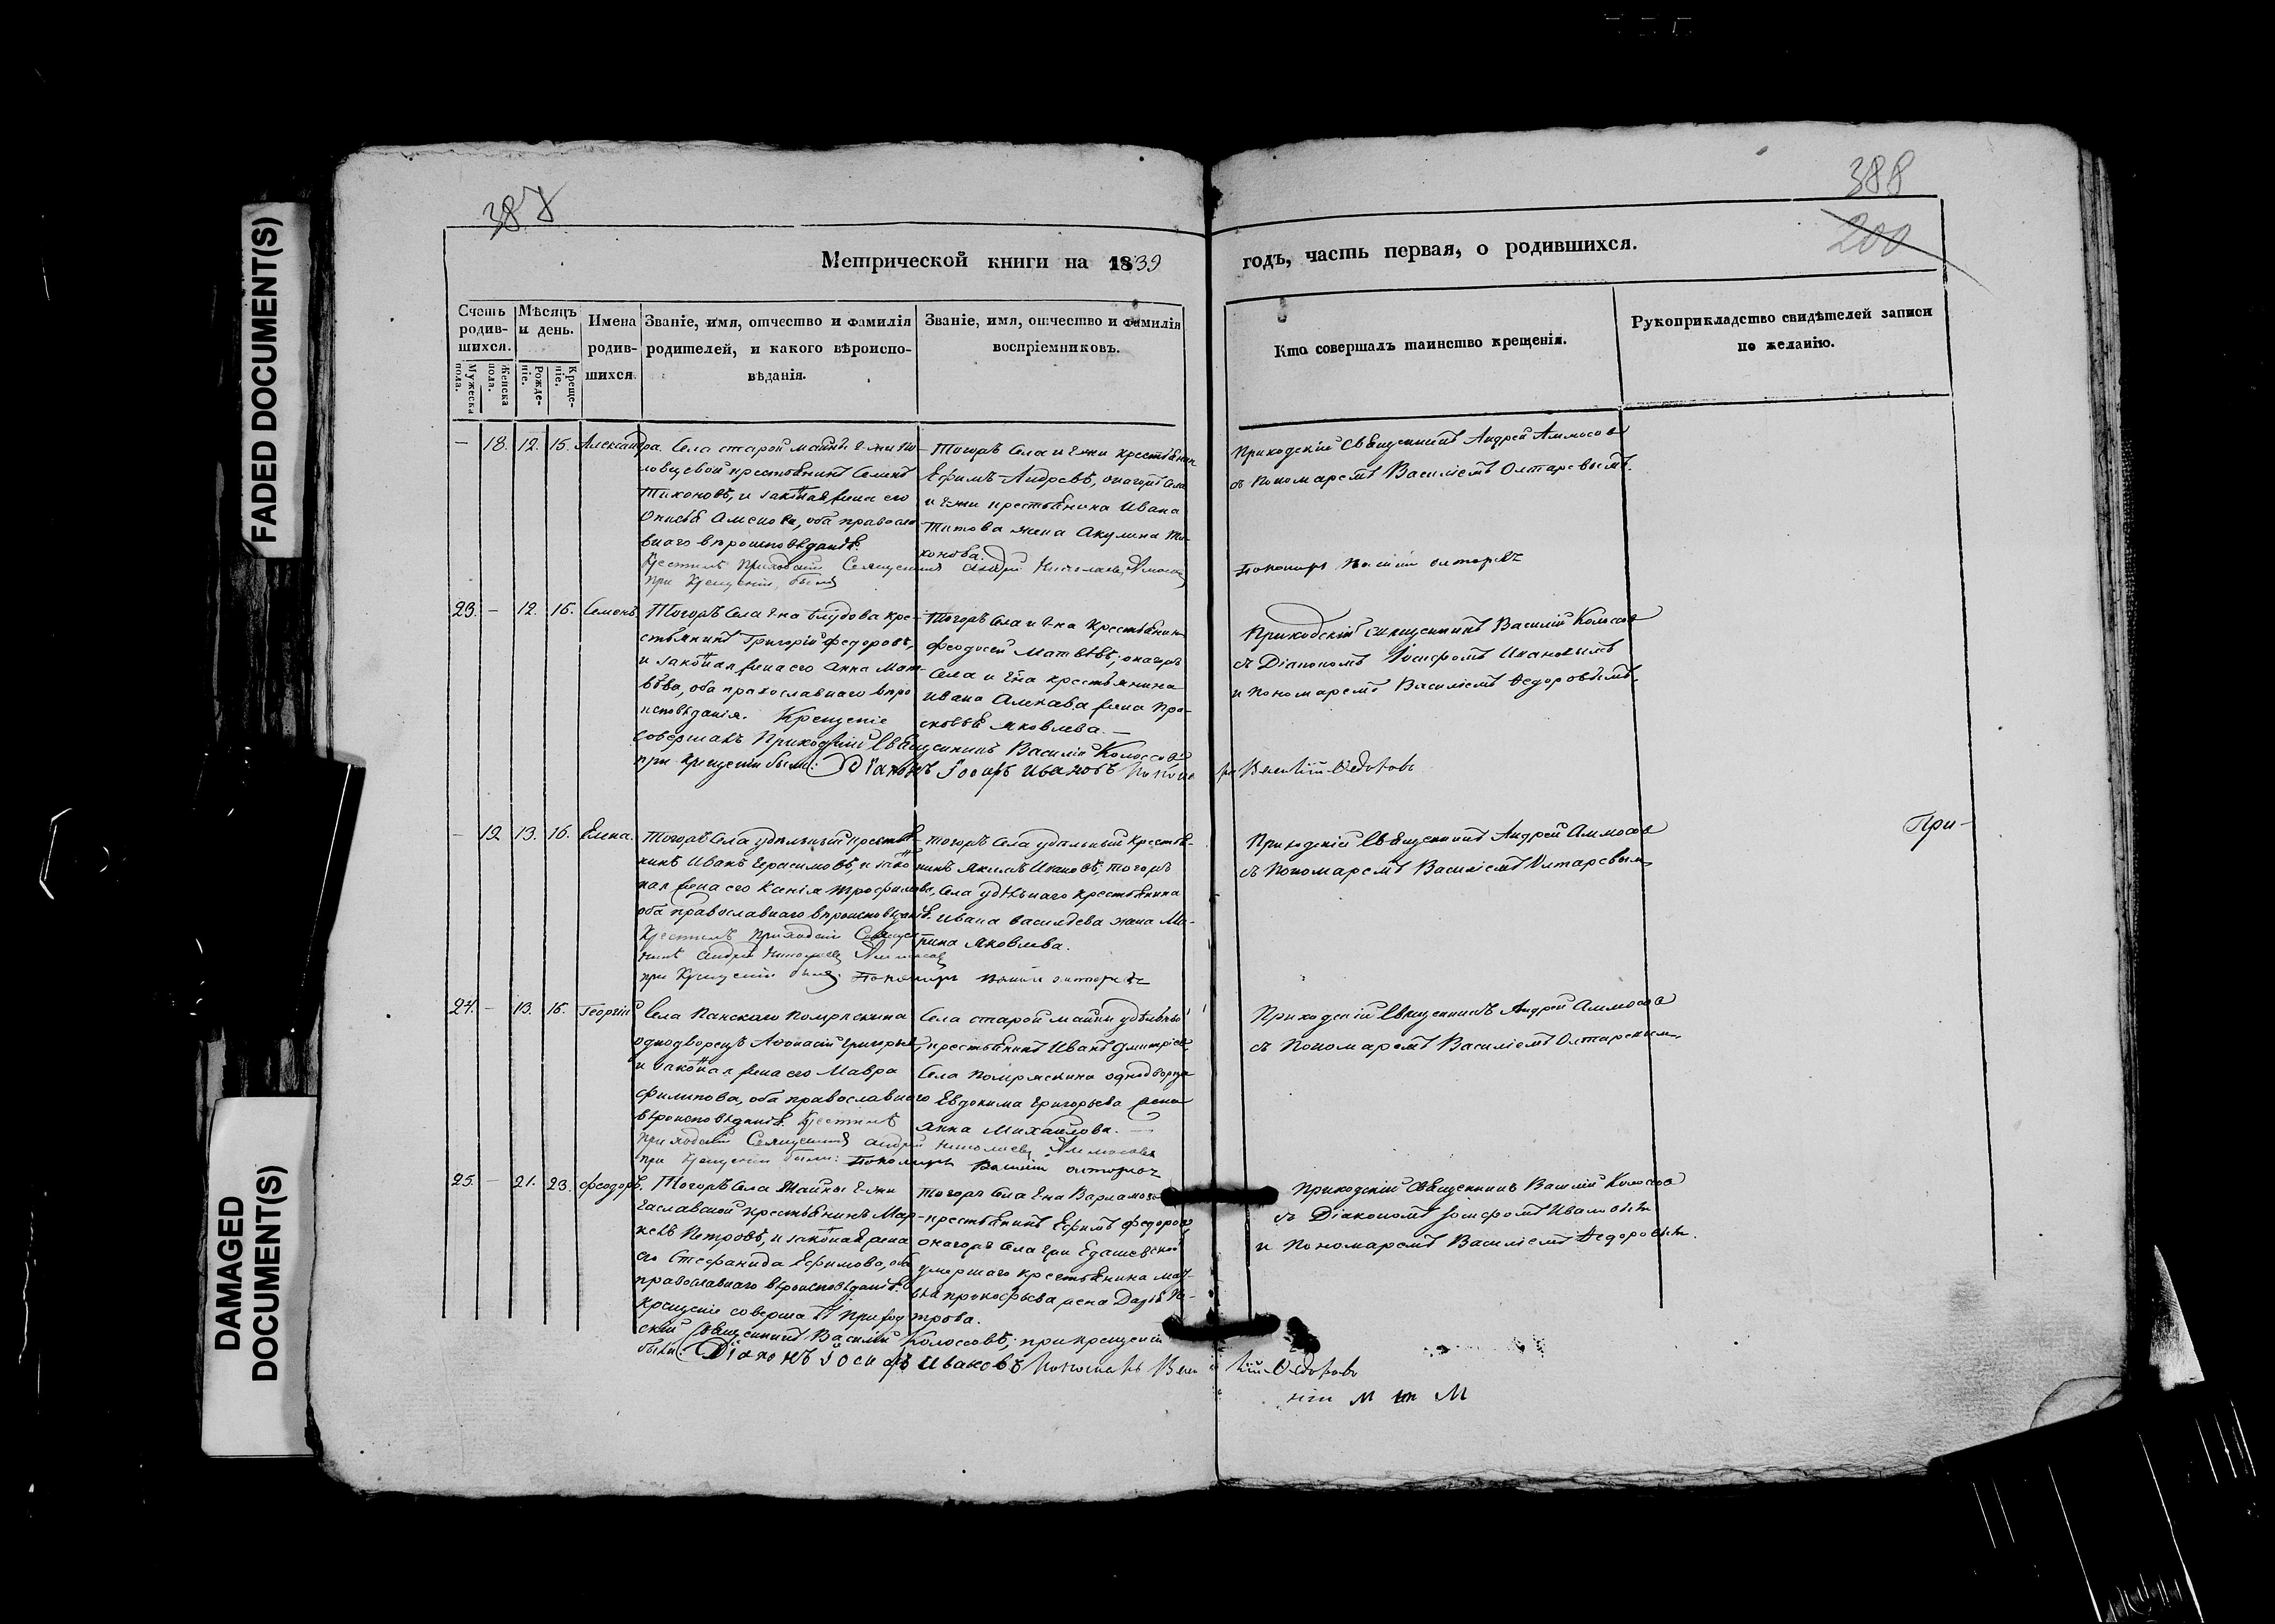 FADED DOCUMENT(S)
DAMAGED DOCUMENT(S)
387
388
200
Метрической книги на 1839
годъ, часть первая, о родившихся.
Счетъ родив-шихся.
Мужеска пола.
Женска пола.
Мѣсяцъ и день.
Рожде-ніе.
Креще-ніе.
Имена родив-шихся
Званіе, имя, отчество и фамилія родителей, и какого вѣроиспо-вѣданія.
Званіе, имя, отчество и фамилія воспріемниковъ.
Кто совершалъ таинство крещенія.
Рукоприкладство свидѣтелей записи по желанію.
— 18. 12. 15. Александра.
Села старой майны г-жи
крестьянинъ Семенъ
Тихоновъ, и законная жена его
оба православ
наго вѣроисповѣданія.
Тогожъ Села и г-жи крестьянинъ
Ефимъ Андреевъ, онагожъ Села
и г-жи крестьянина Ивана
Титова жена Акулина Ти-
хонова.
Крестилъ Приходскій Священникъ Андрей Николаевъ Аммосовъ
при Крещеніи былъ
Приходскій Священникъ Андрей Аммосовъ
съ Пономаремъ Василіемъ Олтаревымъ.
Пономарь Василій Олтаревъ
23. — 12. 15. Семенъ.
Тогожъ Села г-на кре-
стьянинъ Григорій Федоровъ,
и законная жена его Анна Мат-
вѣева, оба православнаго вѣро
исповѣданія. Крещеніе
Тогожъ Села и г-на Крестьянинъ
Феодосей Матвѣевъ, онагожъ
Села и г-на крестьянина
Ивана жена Про-
сковья Яковлева. —
совершалъ Приходскій Священникъ Василій Колосовъ
при крещеніи были: Діаконъ Іосифъ Ивановъ Пономарь Василій Федоровъ
Приходскій священникъ Василій Колосовъ
съ Діакономъ Іосифомъ Ивановымъ
и пономаремъ Василіемъ Федоровымъ.
— 19. 13. 16. Елена.
Тогожъ Села удѣльный крестья-
нинъ Иванъ Герасимовъ, и закон
ная жена его Ксенія Трофимова,
оба православнаго вѣроисповѣданія.
Крестилъ Приходскій Священ
никъ Андрей Николаевъ Аммосовъ
при Крещеніи былъ: Пономарь Василій Олтаревъ
Тогожъ Села удѣльный крестья-
нинъ Якимъ Ивановъ, тогожъ
Села удѣльнаго крестьянина
Ивана Васильева жена Ма-
трина Яковлева.
Приходскій Священникъ Андрей Аммосовъ
съ Пономаремъ Василіемъ Олтаревымъ
При-
24. — 13. 16. Георгій
Села Панскаго Помряскина
однодворецъ Афонасій Григорьевъ,
и законная жена его Мавра
Филипова, оба православнаго
вѣроисповѣданія. Крестилъ
Приходскій Священникъ Андрей Николаевъ Аммосовъ
при Крещеніи были: Пономарь Василій Олтаревъ
Села старой майны удѣльной
крестьянинъ Иванъ Дмитріевъ,
Села Помряскина однодворца
Евдокима Григорьева жена
Анна Михайлова. —
Приходскій Священникъ Андрей Аммосовъ
съ Пономаремъ Василіемъ Олтаревымъ
25. — 21. 23. Феодоръ.
Тогожъ Села Майны г-жи
крестьянинъ Мар-
келъ Петровъ, и законная жена
его Стефанида Ефимова, оба
православнаго вѣроисповѣданія.
Крещеніе совершалъ Приход
скій Священникъ Василій Колосовъ; при крещеніи
были: Діаконъ Іосифъ Ивановъ Пономарь Василій Федоровъ
Тогожъ Села г-на Варламова
крестьянинъ Ефимъ Федоровъ,
онагожъ Села г-жи
умершаго крестьянина Мат-
вѣя Прокофьева жена Дарья Пе-
трова.
Приходскій Священникъ Василій Колосовъ
съ Діакономъ Іосифомъ Ивановымъ
и Пономаремъ Василіемъ Федоровымъ.